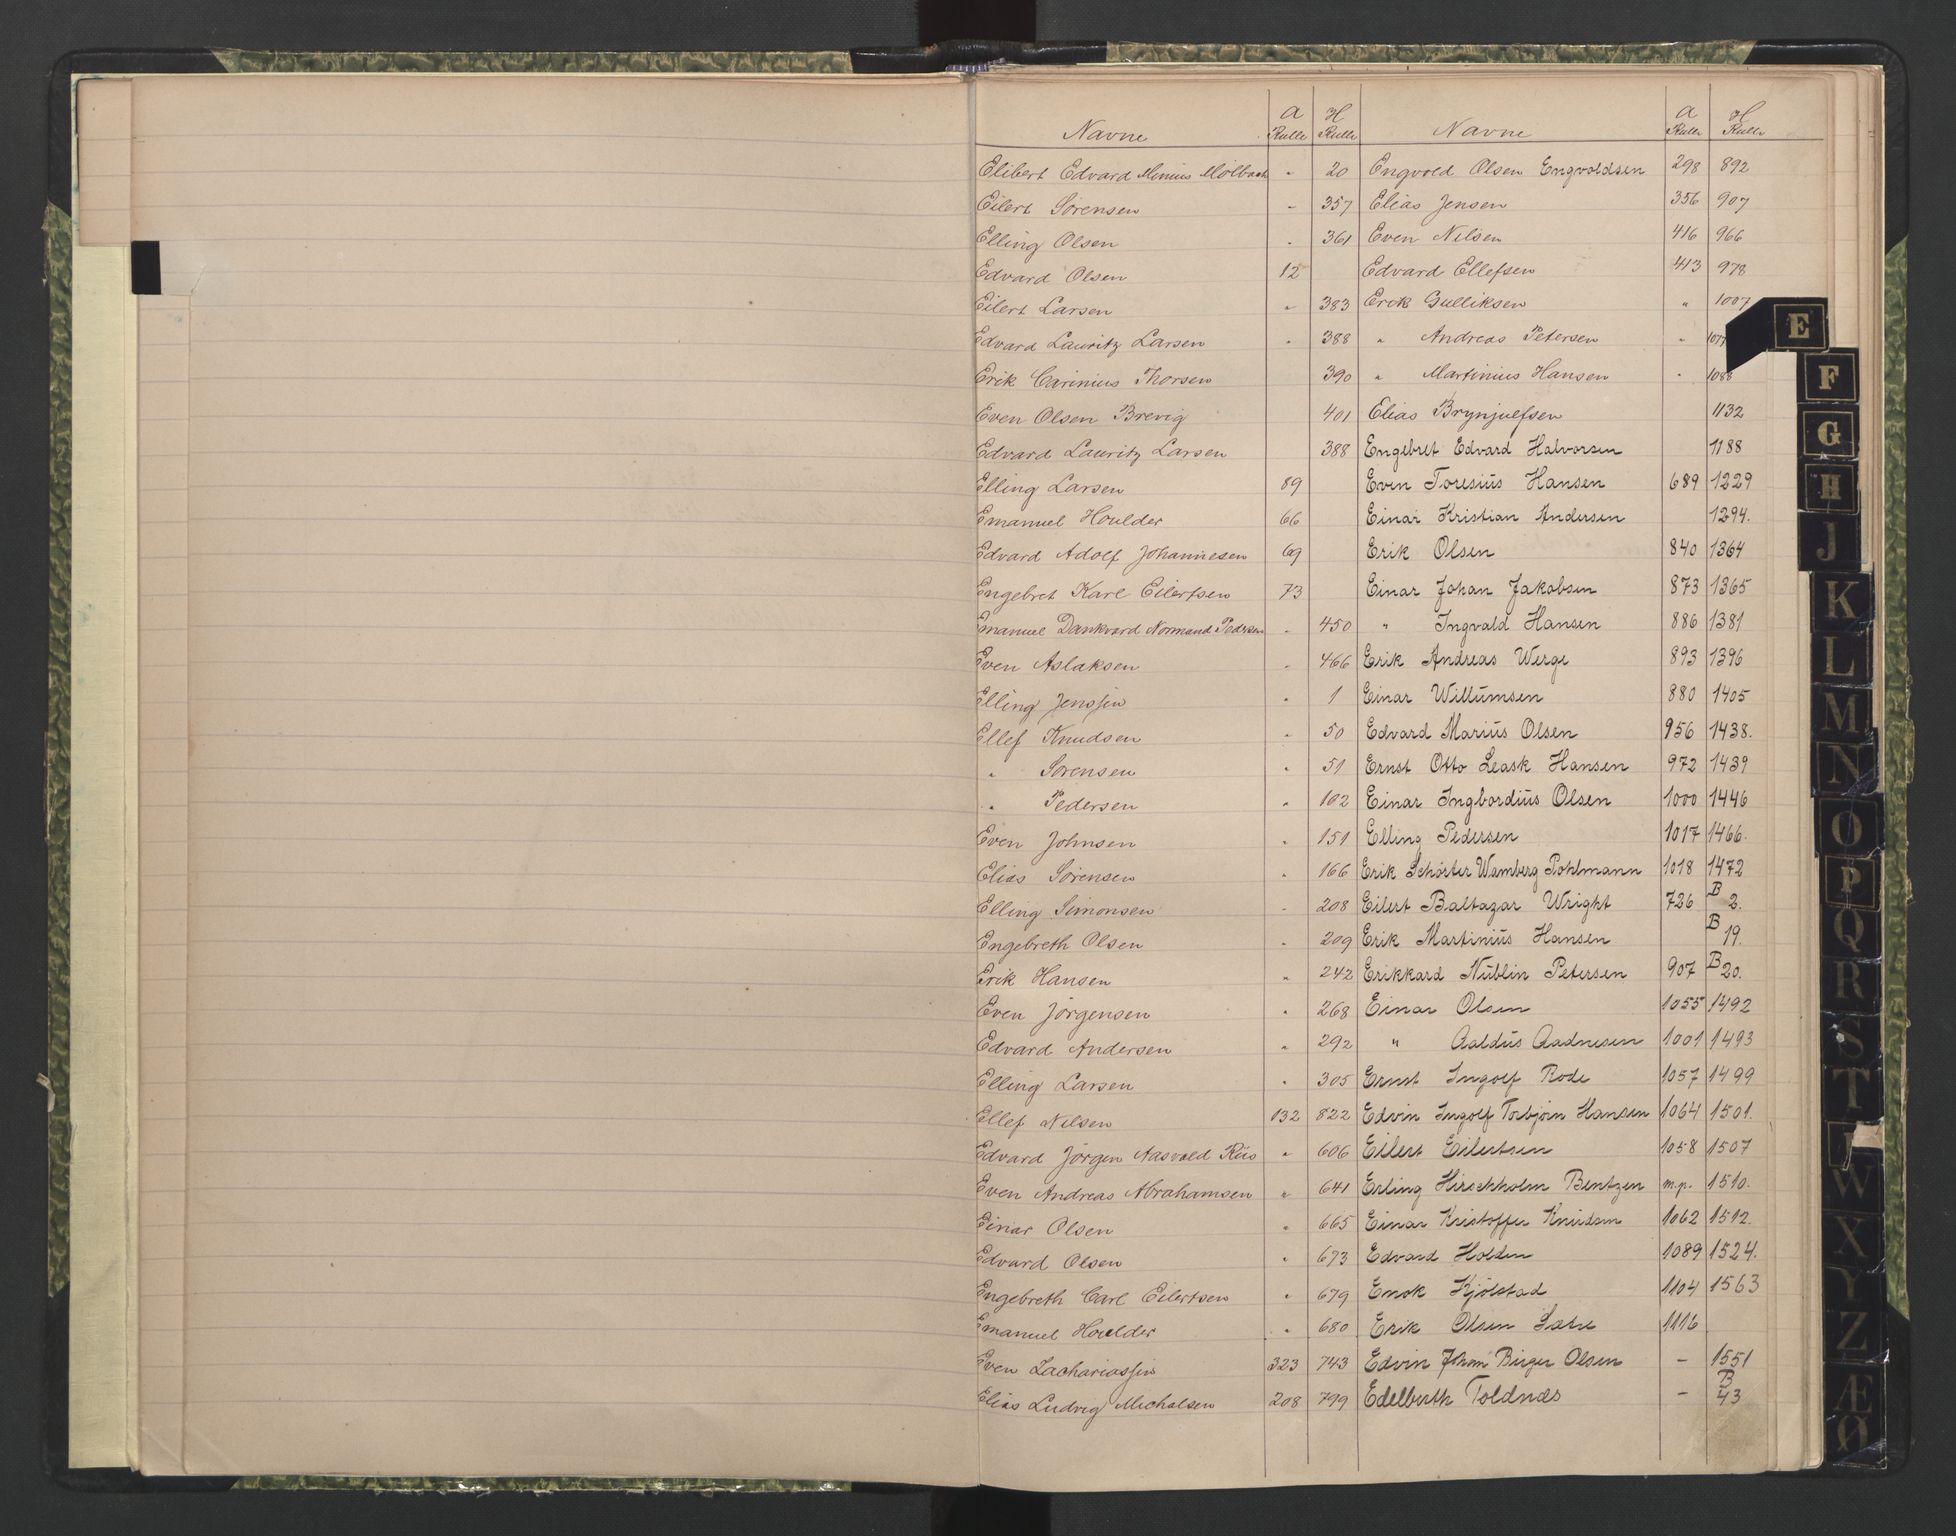 Navne A Rulle H Rulle Navne A Rulle H Rulle
Elibert Edvard Minius Mölbach " 20 Engvold Olsen Engvoldsen 298 892
Eilert Sörensen " 357 Elias Jensen 356 907
Elling Olsen " 361 Even Nilsen 416 966
Edvard Olsen 12 Edvard Ellefsen 413 978
Eilert Larsen " 383 Erik Gulliksen " 1007
Edvard Lauritz Larsen " 388 " Andreas Petersen " 1077
Erik Carinius Thorsen 390 " Martinius Hansen " 1088
Even Olsen Brevig 401 Elias Brynjulfsen 1132
Edvard Lauritz Larsen 388 Engebret Edvard Halvorsen 1188
Elling Larsen 89 Even Toresius Hansen 689 1229
Emanuel Houlder 66 Einar Kristian Andersen 1294.
Edvard Adolf Johannesen 69 Erik Olsen 840 1364
Engebret Karl Eilertsen 73 Einar Johan Jakobsen 873 1365
Emanuel Dankvard Normand Pedersen " 450 " Ingvald Hansen 886 1381
Even Aslaksen " 466 Erik Andreas Werge 893 1396
Elling Jenssen " 1 Einar Willumsen 880 1405
Ellef Knudsen " 50 Edvard Marius Olsen 956 1438.
" Sörensen " 51 Ernst Otto Leask Hansen 972 1439
" Pedersen " 102 Einar Ingbordius Olsen 1000 1446
Even Johnsen " 151 Elling Pedersen 1017 1466.
Elias Sörensen " 166 Erik Schörter Wamberg Pohlmann 1018 1472
Elling Simonsen " 208 Eilert Baltazar Wright 726 B 2.
Engebreth Olsen " 209 Erik Martinius Hansen B 19.
Erik Hansen " 242 Erikkard Nublin Petersen 907 B 20.
Even Jörgensen " 268 Einar Olsen 1055 1492
Edvard Andersen " 292 " Aaldus Aadnesen 1001 1493
Elling Larsen " 305 Ernst Ingolf Rode 1057 1499
Ellef Nilsen 132 822 Edvin Ingolf Torbjörn Hansen 1064 1501.
Edvard Jörgen Aasvold Riis " 606 Eilert Eilertsen 1058 1507
Even Andreas Abrahamsen " 641 Erling Hirschholm Bentzen m.p. 1510.
Einar Olsen " 665 Einar Kristoffer Knudsen 1062 1512.
Edvard Olsen " 673 Edvard Holden 1089 1524.
Engebreth Carl Eilertsen " 679 Enok Kjölstad 1104 1563
Emanuel Houlder " 680 Erik Olsen Sætre 1116
Even Zachariassen 323 743 Edvin Johan Birger Olsen – 1551
Elias Ludvig Michalsen 208 799 Edelberth Toldnæs – B 43
E
F
G
H
J
K
L
M
N
O
P
Q
R
S
T
W
X
Y
Z
Æ
Ø